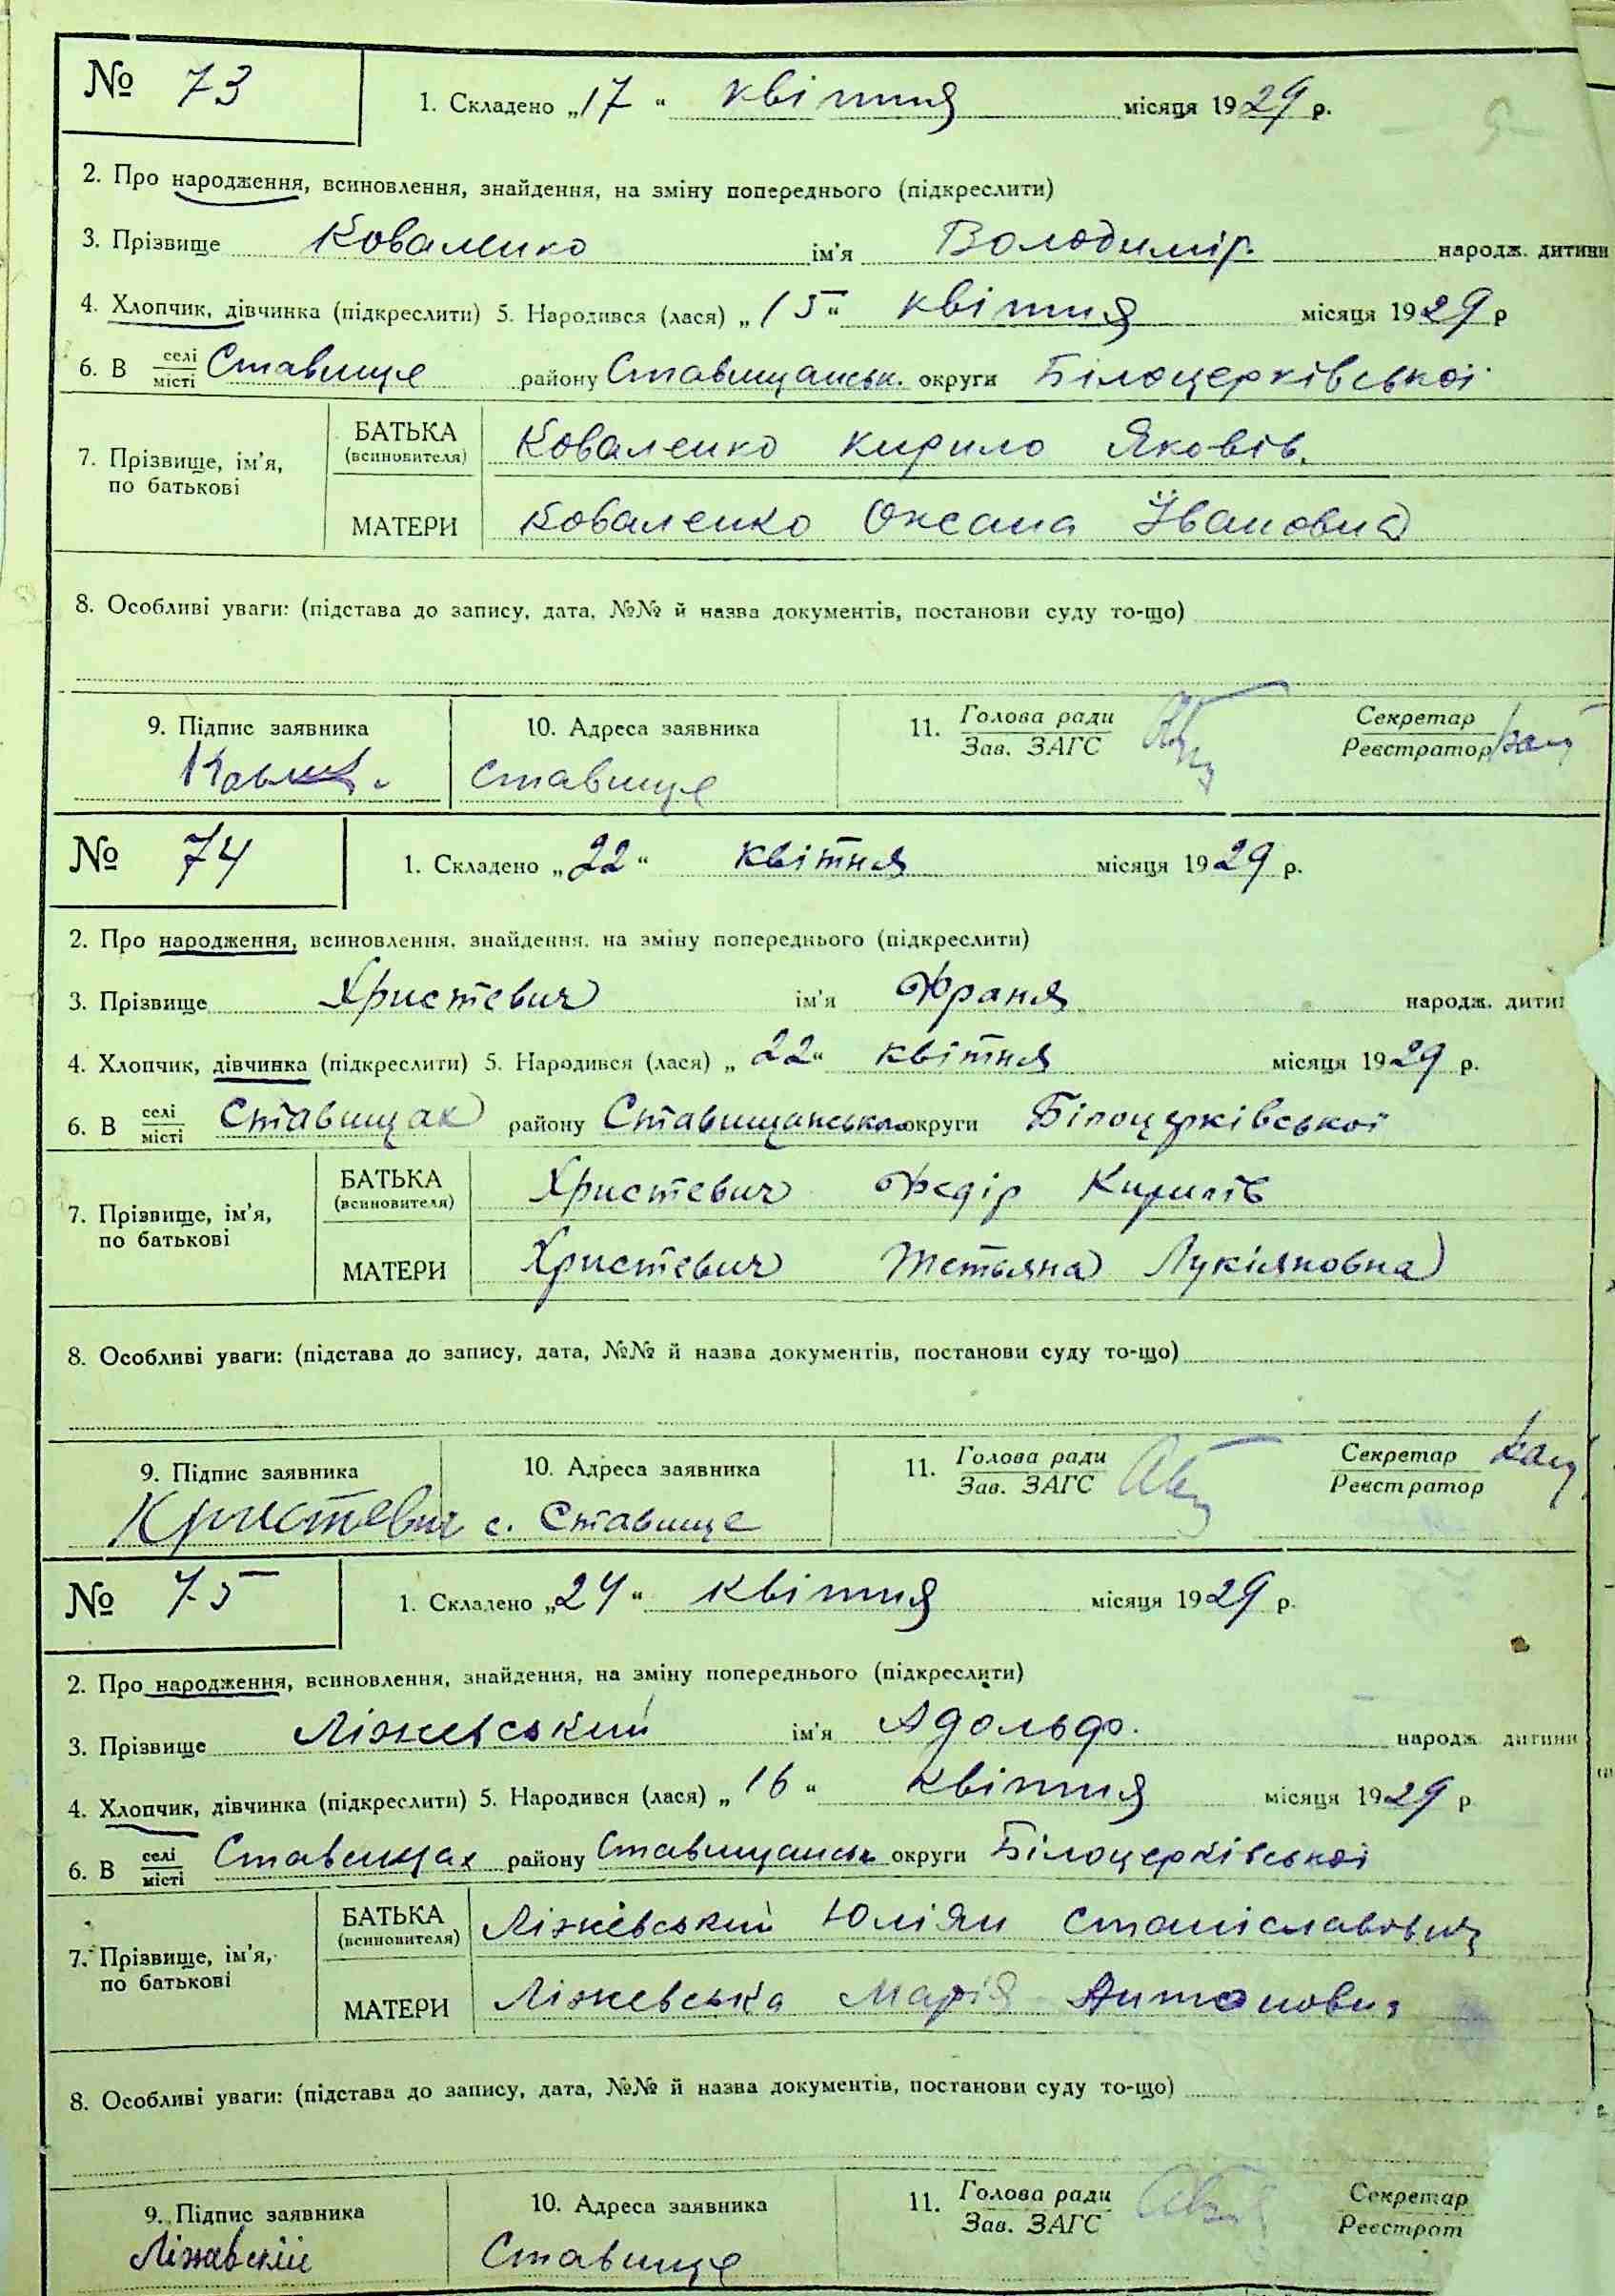 № 73
1. Складено „17“ квітня місяця 1929 р.
2. Про народження, всиновлення, знайдення, на зміну попереднього (підкреслити)
3. Прізвище Коваленко ім'я Володимір. народж. дитини
4. Хлопчик, дівчинка (підкреслити) 5. Народився (лася) „15“ квітня місяця 1929 р
6. В селі/місті Ставище району Ставищанськ. округи Білоцерківської
7. Прізвище, ім'я, по батькові БАТЬКА (всиновителя) Коваленко Кирило Яковів.
МАТЕРИ Коваленко Оксана Івановна
8. Особливі уваги: (підстава до запису, дата, №№ й назва документів, постанови суду то-що)
9. Підпис заявника 10. Адреса заявника 11. Голова ради/Зав. ЗАГС Секретар/Реєстратор
Ставище
№ 74
1. Складено „22“ квітня місяця 1929 р.
2. Про народження, всиновлення, знайдення, на зміну попереднього (підкреслити)
3. Прізвище Христевич ім'я Франя народж. дити
4. Хлопчик, дівчинка (підкреслити) 5. Народився (лася) „22“ квітня місяця 1929 р.
6. В селі/місті Ставищах району Ставищансько округи Білоцерківської
7. Прізвище, ім'я, по батькові БАТЬКА (всиновителя) Христевич Федір Кирилів
МАТЕРИ Христевич Тетьяна Лукіяновна
8. Особливі уваги: (підстава до запису, дата, №№ й назва документів, постанови суду то-що)
9. Підпис заявника 10. Адреса заявника 11. Голова ради/Зав. ЗАГС Секретар/Реєстратор
Христевич с. Ставище
№ 75
1. Складено „24“ квітня місяця 1929 р.
2. Про народження, всиновлення, знайдення, на зміну попереднього (підкреслити)
3. Прізвище Ліжевський ім'я Адольф. народж. дитини
4. Хлопчик, дівчинка (підкреслити) 5. Народився (лася) „16“ квітня місяця 1929 р
6. В селі/місті Ставищах району Ставищанськ округи Білоцерківської
7. Прізвище, ім'я, по батькові БАТЬКА (всиновителя) Ліжевський Юліян Станіславович
МАТЕРИ Ліжевська Марія Антоновна
8. Особливі уваги: (підстава до запису, дата, №№ й назва документів, постанови суду то-що)
9. Підпис заявника 10. Адреса заявника 11. Голова ради/Зав. ЗАГС Секретар/Реєстрат
Ліжевскій Ставище